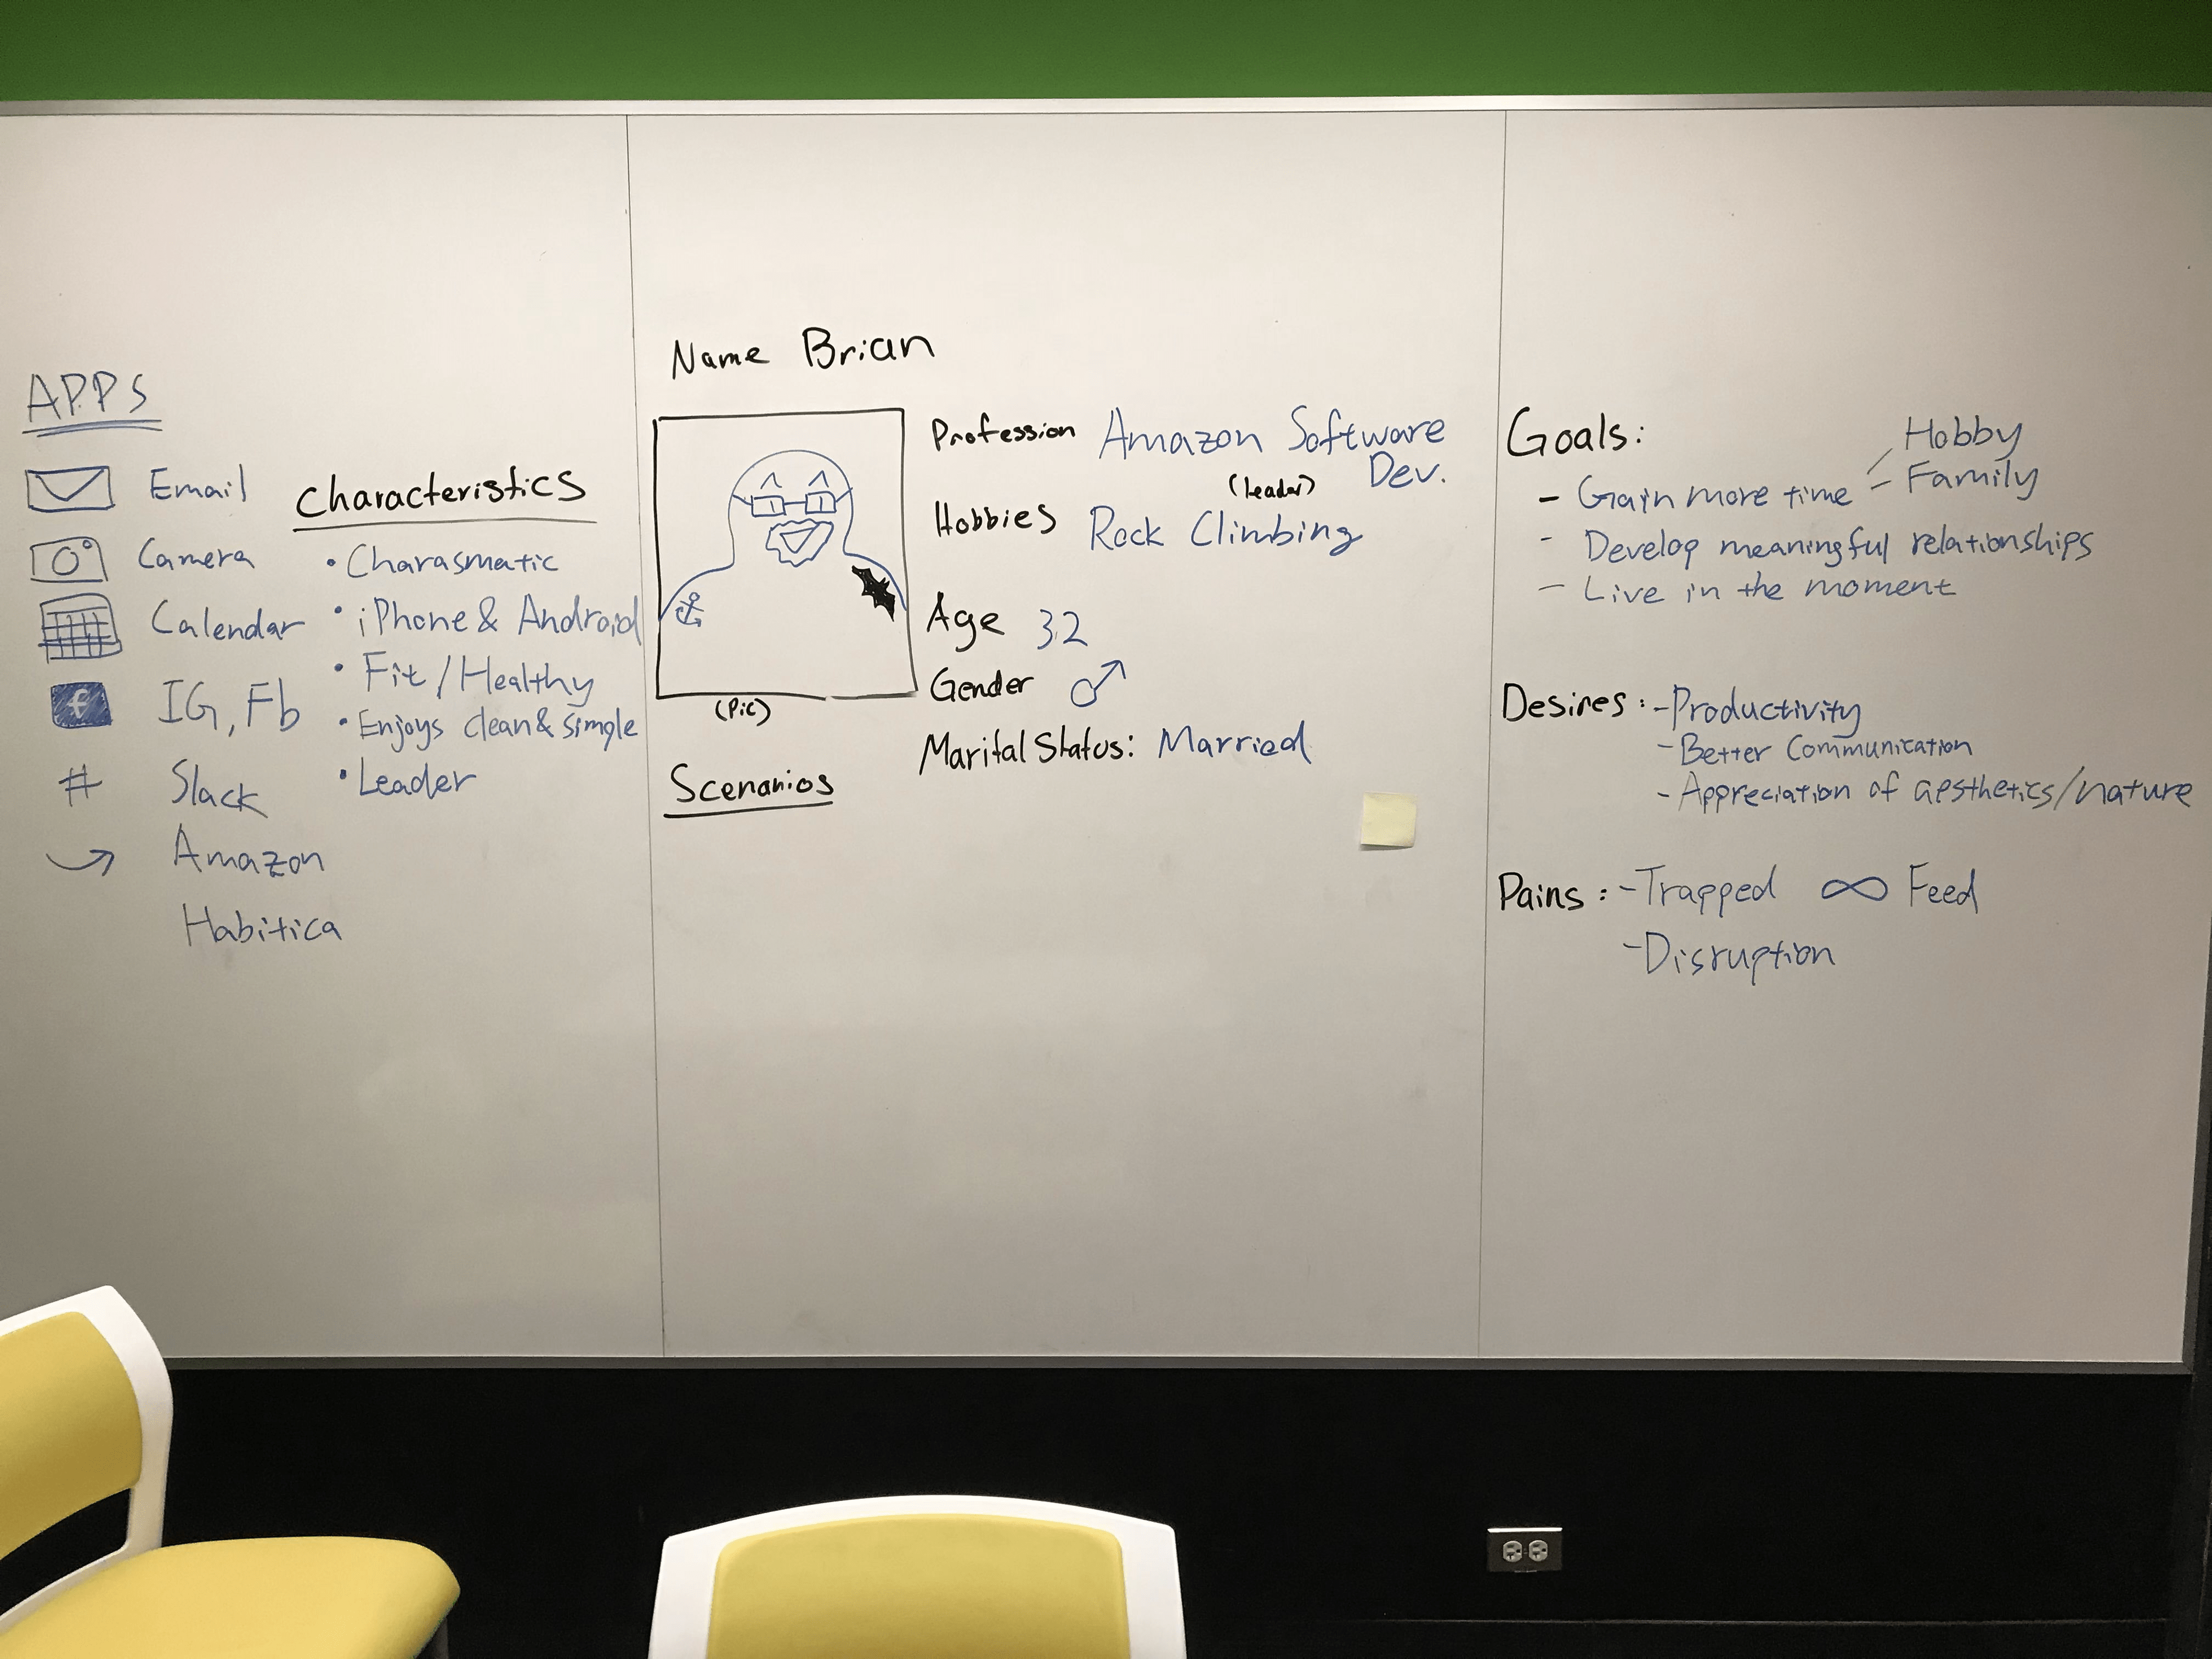 APPS
Email
Camera
Calendar
f IG, Fb
# Slack
Amazon
Habitica
Characteristics
• Charasmatic
• iPhone & Android
• Fit / Healthy
• Enjoys clean & simple
• Leader
Name Brian
(Pic)
Profession Amazon Software
Dev.
(leader)
Hobbies Rock Climbing
Age 32
Gender ♂
Marital Status: Married
Scenarios
Goals:
Hobby
- Gain more time - Family
- Develop meaningful relationships
- Live in the moment
Desires: - Productivity
- Better Communication
- Appreciation of aesthetics/nature
Pains: - Trapped ∞ Feed
- Disruption